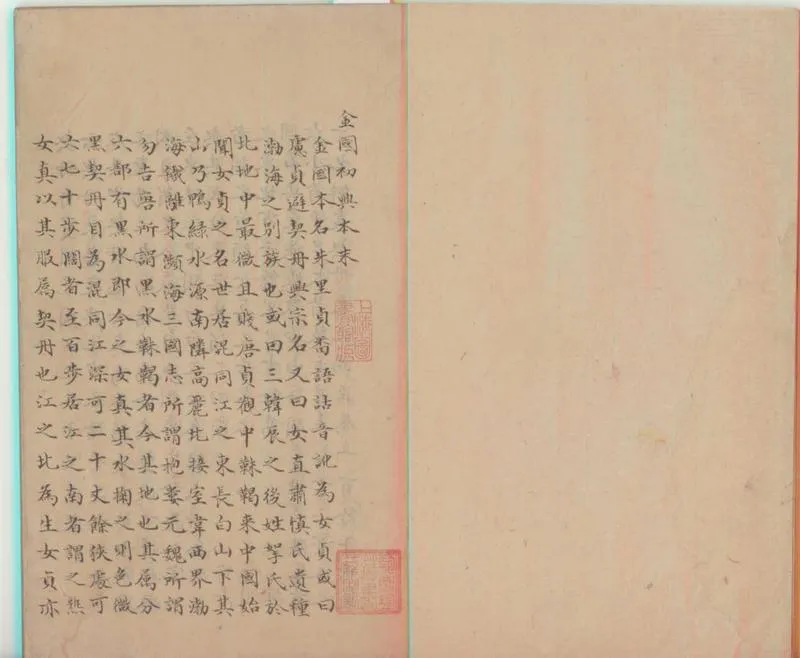 金國初興本末
金國本名朱里貞番語詁音訛為女貞或曰
慮貞避契丹興宗名又曰女直肅慎氏遺種
渤海之别族也或曰三韓辰之後姓挐氏於
北地中最微且賤唐貞觀中靺鞨來中國始
聞女貞之名世居混同江之東長白山下其
山乃鴨緑水源南隣高麗北接室韋西界渤
海鐵離東瀕海三國志所謂挹婁元魏所謂
勿告唐所謂黑水靺鞨者今其地也其属分
六部有黑水即今之女真其水掬之則色微
黑契丹目為混同江深可二十丈餘狹處可
六七十步闊者至百步居江之南者謂之熟
女真以其服属契丹也江之北為生女貞亦
上海圖書館藏